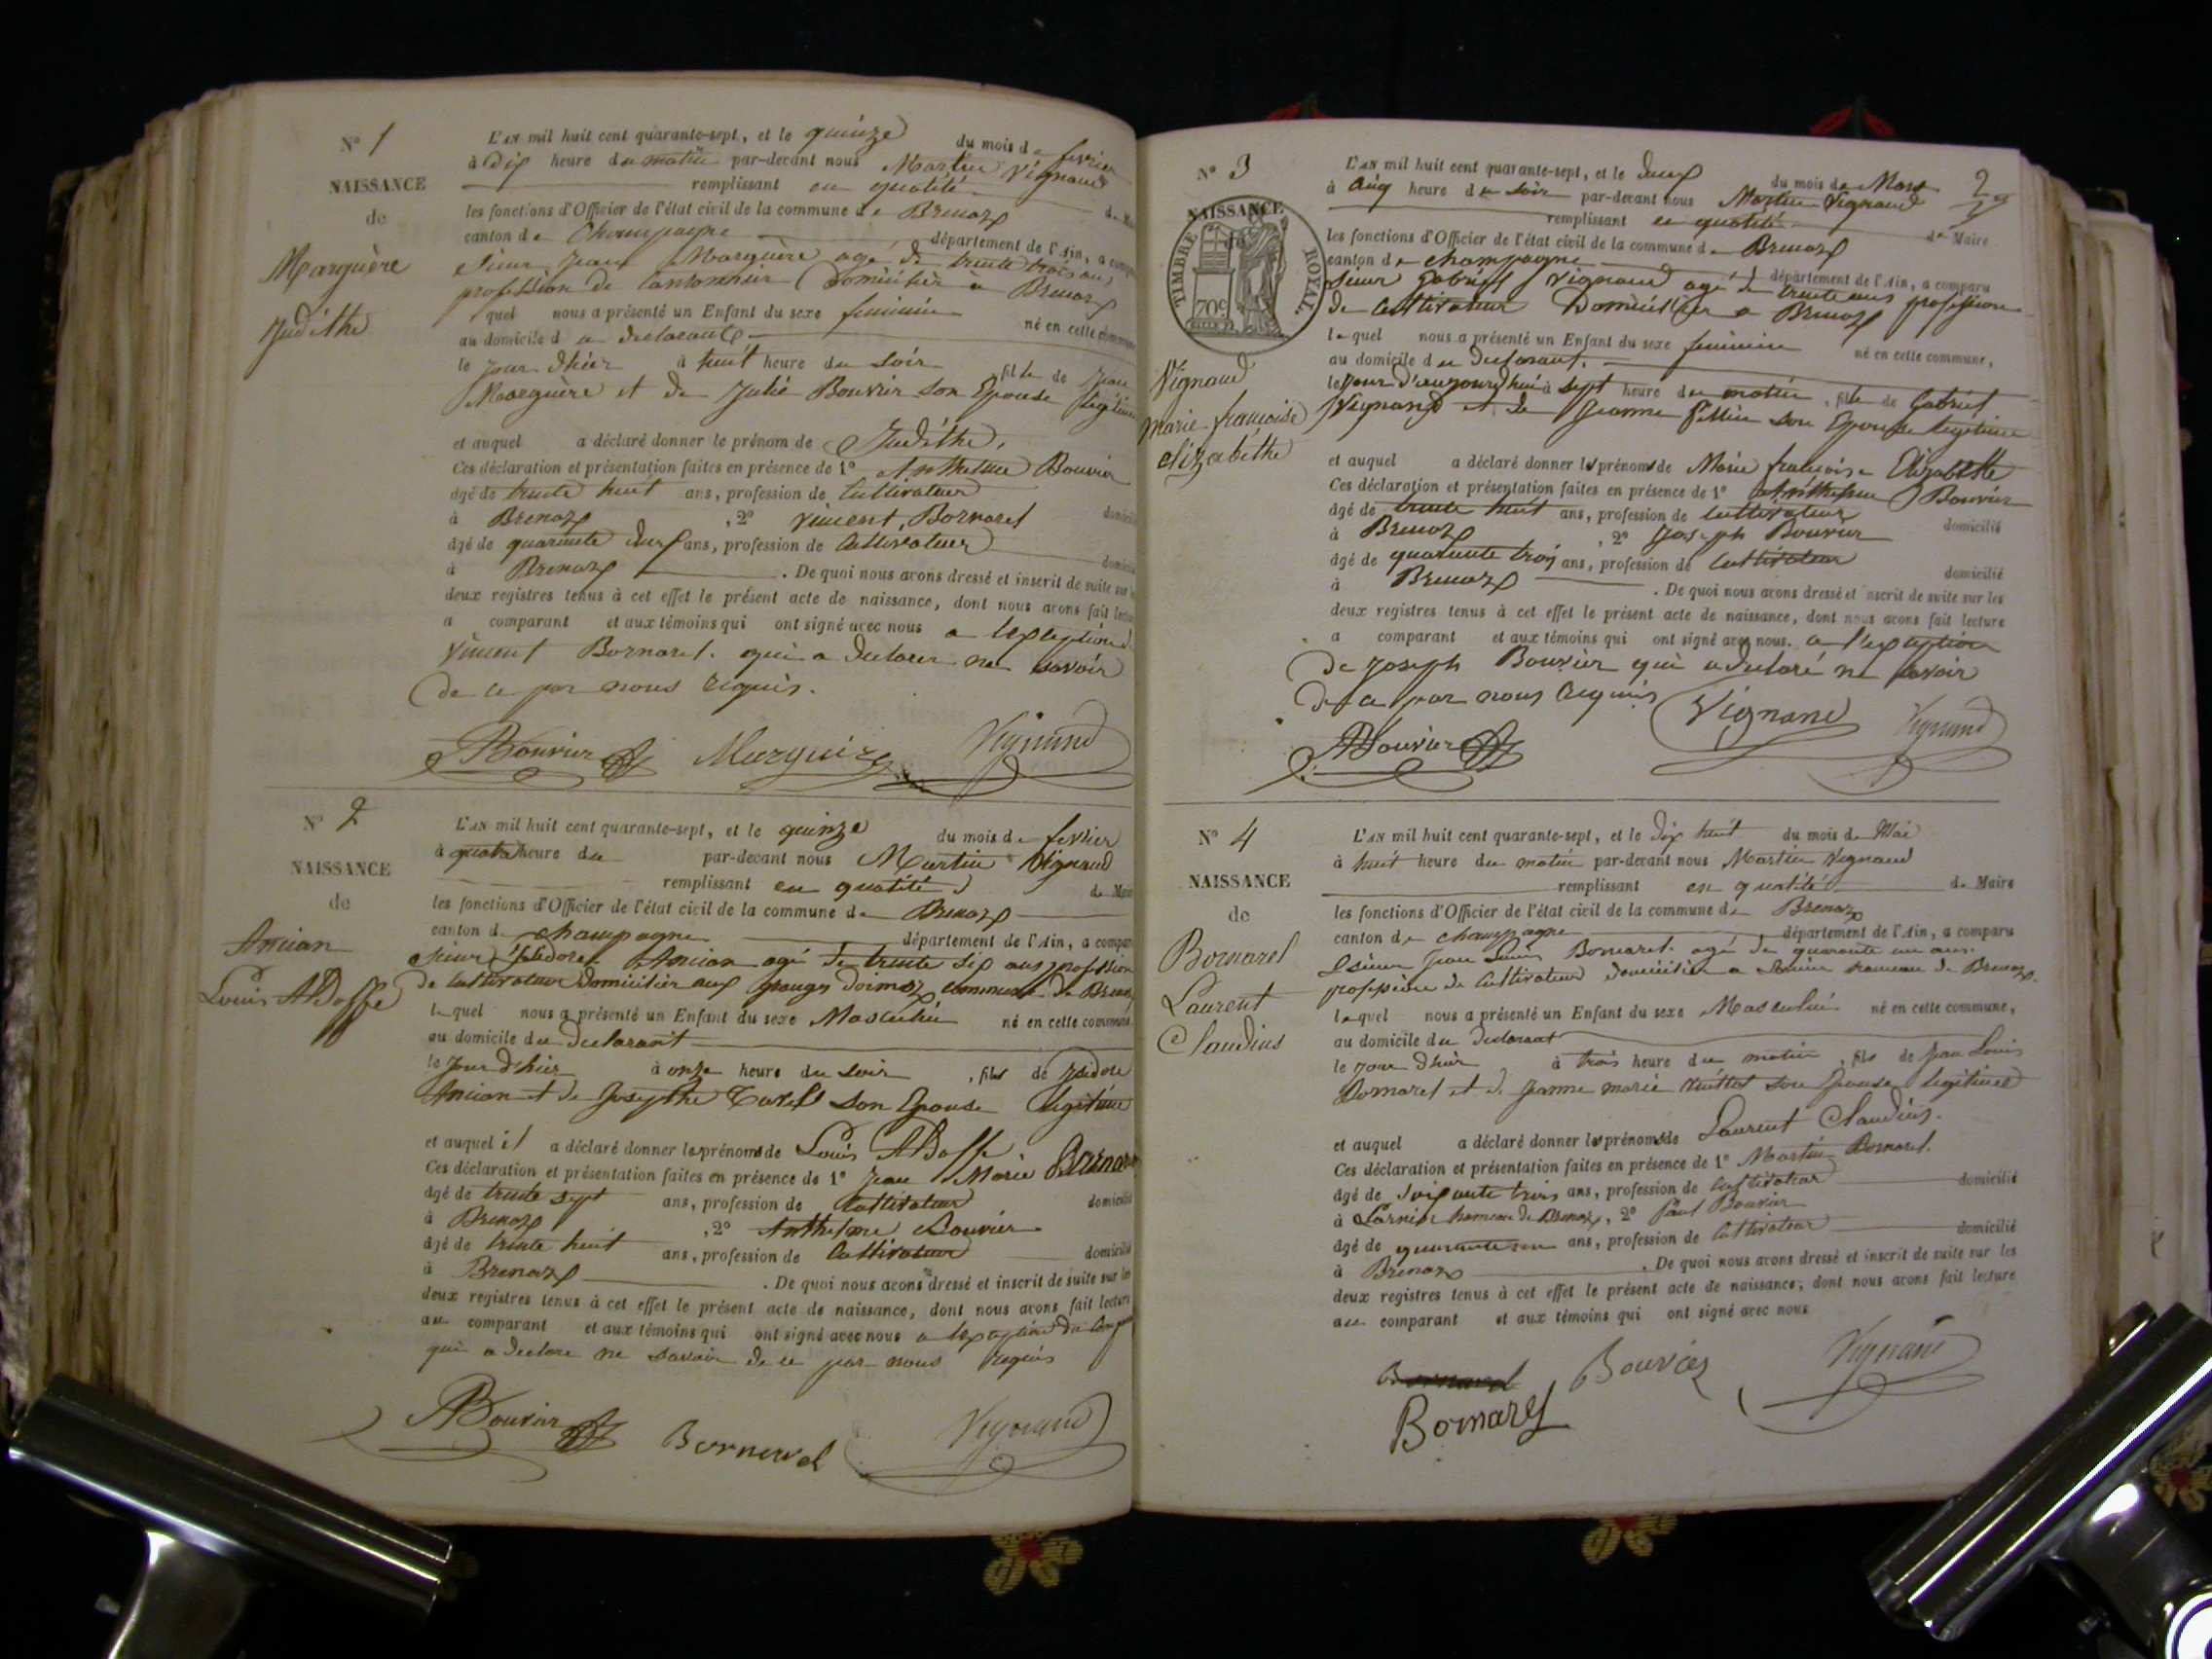 N° 1
NAISSANCE
de
Marguère
Judithe
L'AN mil huit cent quarante-sept, et le quinze du mois de fevrier
à dix heure du matin par-devant nous Martin Vignand
remplissant en qualité de Maire
les fonctions d'Officier de l'état civil de la commune de Brenaz
canton de Champagne département de l'Ain, a comparu
sieur Jean Marguère agé de trente trois ans,
profession de Cantonnier Domicilier à Brenaz
quel nous a présenté un Enfant du sexe feminin
au domicile d u declarant né en cette commune
le jour d'hier à huit heure du soir fille de Jean
Marguère et de Julie Bouvier son Epouse légitime
et auquel a déclaré donner le prénom de Judithe,
Ces déclaration et présentation faites en présence de 1° Anthelme Bouvier
âgé de trente huit ans, profession de Cultivateur
à Brenaz , 2° Vincent Bornarel domicilié
âgé de quarante deux ans, profession de Cultivateur
à Brenaz . De quoi nous avons dressé et inscrit de suite sur les
deux registres tenus à cet effet le présent acte de naissance, dont nous avons fait lecture
a comparant et aux témoins qui ont signé avec nous a l'exception de
Vincent Bornarel. qui a declarer ne savoir
de ce par nous requis.
ABouvier Marguire Vignand
N° 2
NAISSANCE
de
Ancian
Louis Adolffe
L'AN mil huit cent quarante-sept, et le quinze du mois de fevrier
à quatre heure du par-devant nous Martin Vignand
remplissant en qualité de Maire
les fonctions d'Officier de l'état civil de la commune de Brenaz
canton de champagne département de l'Ain, a comparu
sieur Isidore Ancian agé de trente six ans profession
de Cultivateur Domicilier aux granges commune de Brenaz
lequel nous a présenté un Enfant du sexe Masculin né en cette commune,
au domicile du declarant
le jour d'hier à onze heure du soir , fils de Isidore
Ancian et de Josephte son Epouse légitime
et auquel il a déclaré donner les prénoms de Louis Adolffe
Ces déclaration et présentation faites en présence de 1° Jean Marie Bornarel
âgé de trente sept ans, profession de Cultivateur domicilié
à Brenaz , 2° Anthelme Bouvier
âgé de trente huit ans, profession de Cultivateur domicilié
à Brenaz . De quoi nous avons dressé et inscrit de suite sur les
deux registres tenus à cet effet le présent acte de naissance, dont nous avons fait lecture
au comparant et aux témoins qui ont signé avec nous a l'exception du
qui a declare ne savoir de ce par nous requis
ABouvier Bornerel Vignand
2
N° 3
NAISSANCE
de
TIMBRE ROYAL
70c
Vignand
marie françoise
elizabethe
L'AN mil huit cent quarante-sept, et le deux du mois de Mars
à cinq heure du soir par-devant nous Martin Vignand
remplissant en qualité de Maire
les fonctions d'Officier de l'état civil de la commune de Brenaz
canton de champagne département de l'Ain, a comparu
sieur Gabriel Vignand agé de trente ans profession
de Cultivateur Domicilier a Brenaz
lequel nous a présenté un Enfant du sexe feminin né en cette commune,
au domicile du declarant.
le jour d'aujourd'hui à sept heure du matin , fille de Gabriel
Vignand et de Jeanne son Epouse légitime
et auquel a déclaré donner les prénoms de Marie françoise Elizabethe
Ces déclaration et présentation faites en présence de 1° Anthelme Bouvier
âgé de trente huit ans, profession de Cultivateur domicilié
à Brenaz , 2° Joseph Bouvier
âgé de quarante trois ans, profession de Cultivateur domicilié
à Brenaz . De quoi nous avons dressé et inscrit de suite sur les
deux registres tenus à cet effet le présent acte de naissance, dont nous avons fait lecture
a comparant et aux témoins qui ont signé avec nous. a l'exception
de Joseph Bouvier qui a declaré ne savoir
de ce par nous requis
ABouvier Vignand Vignand
N° 4
NAISSANCE
de
Bornarel
Laurent
Claudius
L'AN mil huit cent quarante-sept, et le dix huit du mois de Mai
à huit heure du matin par-devant nous Martin Vignand
remplissant en qualité de Maire
les fonctions d'Officier de l'état civil de la commune de Brenaz
canton de champagne département de l'Ain, a comparu
sieur Jean Louis Bornarel. agé de quarante un ans.
profession de Cultivateur domicilier a hameau de Brenaz.
lequel nous a présenté un Enfant du sexe Masculin né en cette commune,
au domicile du declarant
le jour d'hier à trois heure du matin , fils de Jean Louis
Bornarel et de Jeanne marie son Epouse legitime
et auquel a déclaré donner les prénoms de Laurent Claudius.
Ces déclaration et présentation faites en présence de 1° Martin Bornarel.
âgé de soixante trois ans, profession de Cultivateur domicilié
à hameau de Brenaz, 2° Paul Bouvier
âgé de quarante un ans, profession de Cultivateur domicilié
à Brenaz . De quoi nous avons dressé et inscrit de suite sur les
deux registres tenus à cet effet le présent acte de naissance, dont nous avons fait lecture
au comparant et aux témoins qui ont signé avec nous
Bornarel Bouvier Vignand
Bornarel